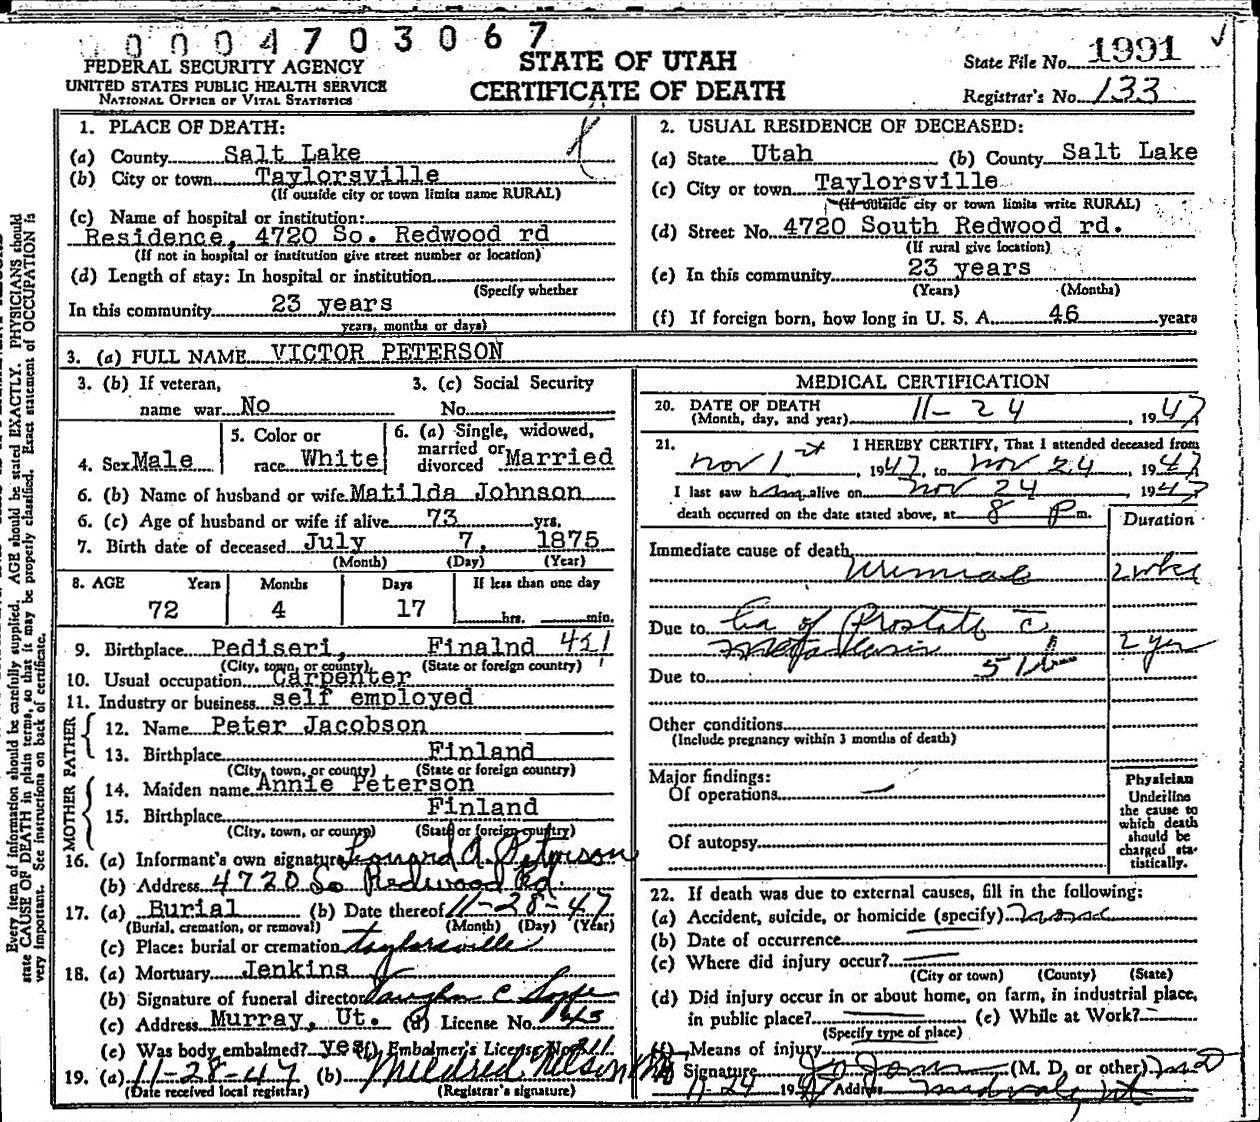 0004703067
FEDERAL SECURITY AGENCY
UNITED STATES PUBLIC HEALTH SERVICE
NATIONAL OFFICE OF VITAL STATISTICS
STATE OF UTAH
CERTIFICATE OF DEATH
State File No. 1991
Registrar's No. 133
Every item of information should be carefully supplied. AGE should be stated EXACTLY. PHYSICIANS should
state CAUSE OF DEATH in plain terms, so that it may be properly classified. Exact statement of OCCUPATION is
very important. See instructions on back of certificate.
1. PLACE OF DEATH:
(a) County Salt Lake
(b) City or town Taylorsville
(If outside city or town limits name RURAL)
(c) Name of hospital or institution:
Residence, 4720 So. Redwood rd
(If not in hospital or institution give street number or location)
(d) Length of stay: In hospital or institution
(Specify whether
In this community 23 years
years, months or days)
2. USUAL RESIDENCE OF DECEASED:
(a) State Utah (b) County Salt Lake
(c) City or town Taylorsville
(If outside city or town limits write RURAL)
(d) Street No. 4720 South Redwood rd.
(If rural give location)
(e) In this community 23 years
(Years) (Months)
(f) If foreign born, how long in U. S. A. 46 years
3. (a) FULL NAME VICTOR PETERSON
3. (b) If veteran,
name war No
3. (c) Social Security
No.
4. Sex Male
5. Color or
race White
6. (a) Single, widowed,
married or
divorced Married
6. (b) Name of husband or wife Matilda Johnson
6. (c) Age of husband or wife if alive 73 yrs.
7. Birth date of deceased July 7, 1875
(Month) (Day) (Year)
8. AGE Years Months Days If less than one day
72 4 17 hrs. min.
9. Birthplace Pediseri, Finalnd 421
(City, town, or county) (State or foreign country)
10. Usual occupation Carpenter
11. Industry or business self employed
FATHER
12. Name Peter Jacobson
13. Birthplace Finland
(City, town, or county) (State or foreign country)
MOTHER
14. Maiden name Annie Peterson
15. Birthplace Finland
(City, town, or county) (State or foreign country)
16. (a) Informant's own signature Leonard A. Peterson
(b) Address 4720 So Redwood Rd.
17. (a) Burial (b) Date thereof 11-28-47
(Burial, cremation, or removal) (Month) (Day) (Year)
(c) Place: burial or cremation Taylorsville
18. (a) Mortuary Jenkins
(b) Signature of funeral director Vaughn C
(c) Address Murray, Ut. (d) License No.
(e) Was body embalmed? yes (f) Embalmer's License No. 211
19. (a) 11-28-47 (b) Mildred Nelson
(Date received local registrar) (Registrar's signature)
MEDICAL CERTIFICATION
20. DATE OF DEATH
(Month, day, and year) 11-24, 1947
21. I HEREBY CERTIFY, That I attended deceased from
Nov 1st, 1947, to Nov 24, 1947
I last saw him alive on Nov 24 1947
death occurred on the date stated above, at 8 P m.
Duration
Immediate cause of death
Uremia 2 wks
Due to Ca of Prostate c̄
metastasis 2 yrs
Due to
Other conditions
(Include pregnancy within 3 months of death)
Major findings:
Of operations
Of autopsy
Physician
Underline
the cause to
which death
should be
charged sta-
tistically.
22. If death was due to external causes, fill in the following:
(a) Accident, suicide, or homicide (specify) none
(b) Date of occurrence
(c) Where did injury occur?
(City or town) (County) (State)
(d) Did injury occur in or about home, on farm, in industrial place,
in public place? (e) While at Work?
(Specify type of place)
(f) Means of injury
Signature (M. D. or other) MD
11-24 1947 Address Midvale, Ut